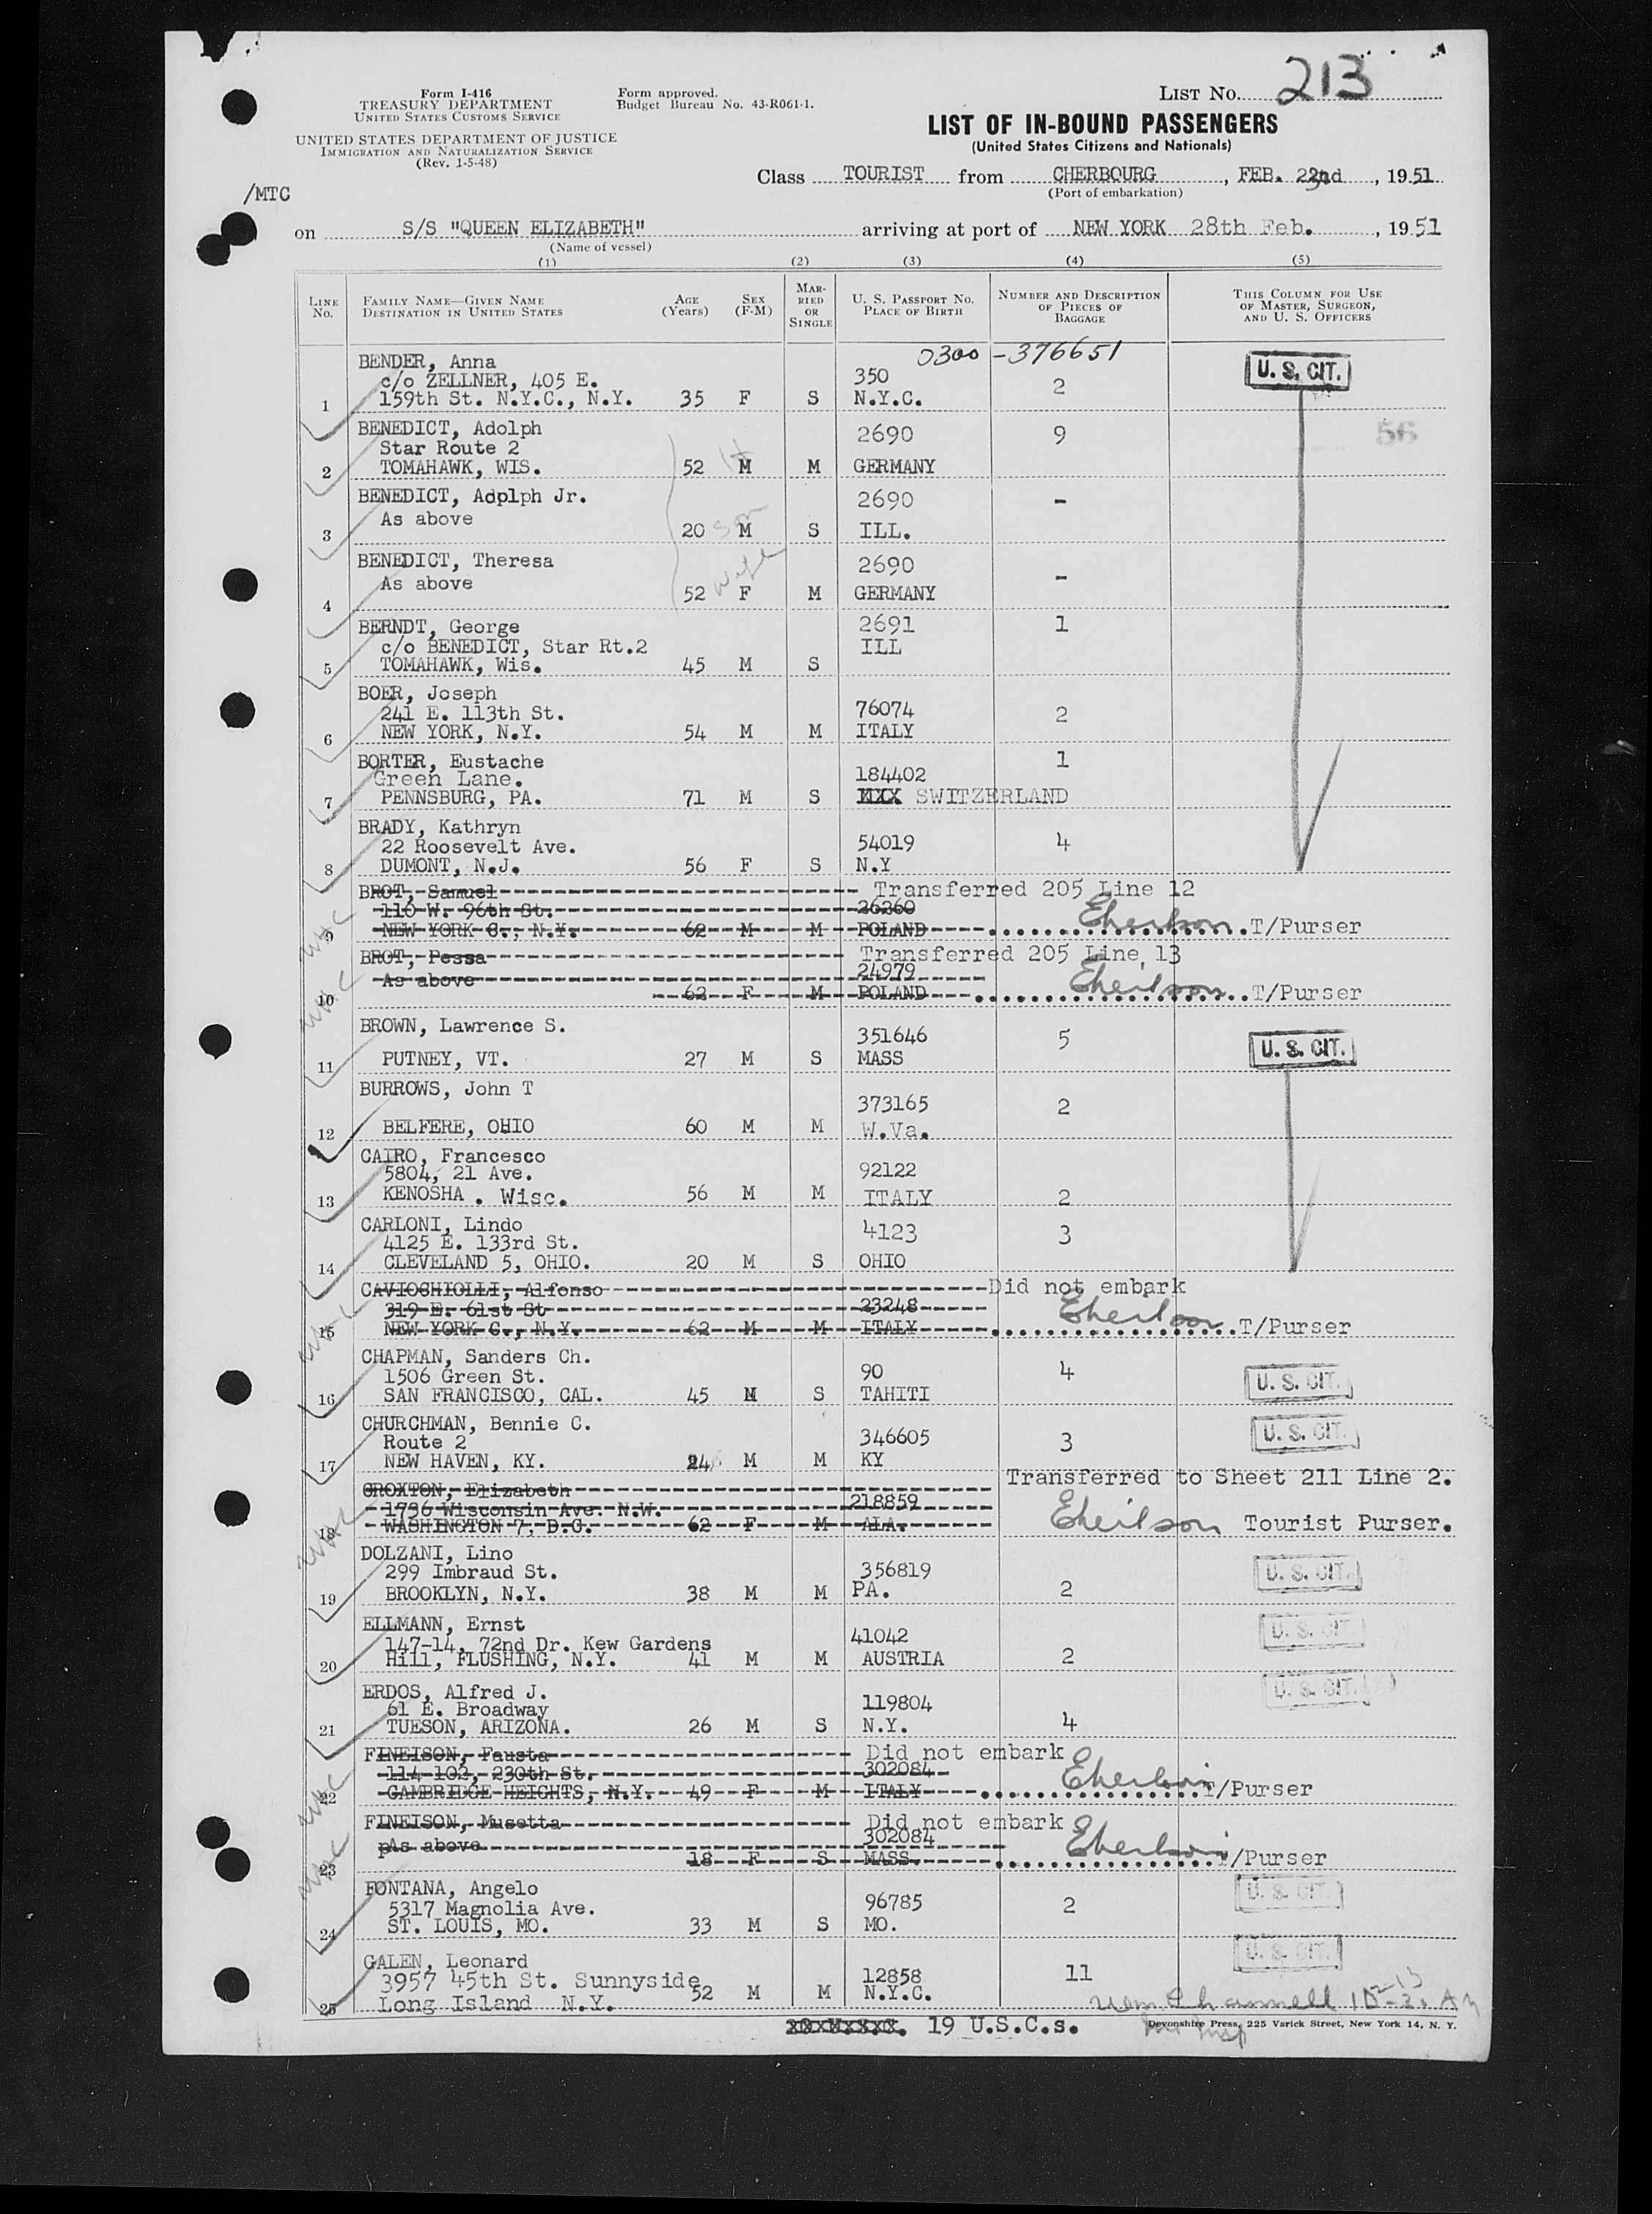 Form I-416
TREASURY DEPARTMENT
UNITED STATES CUSTOMS SERVICE
UNITED STATES DEPARTMENT OF JUSTICE
IMMIGRATION AND NATURALIZATION SERVICE
(Rev. 1-5-48)
Form approved.
Budget Bureau No. 43-R061-1.
LIST No. 213
LIST OF IN-BOUND PASSENGERS
(United States Citizens and Nationals)
/MTC
Class TOURIST from CHERBOURG, FEB. 22nd, 1951
(Port of embarkation)
on S/S "QUEEN ELIZABETH" arriving at port of NEW YORK 28th Feb., 1951
(Name of vessel)
(1) (2) (3) (4) (5)
LINE No. FAMILY NAME—GIVEN NAME DESTINATION IN UNITED STATES AGE (Years) SEX (F-M) MARRIED OR SINGLE U. S. PASSPORT No. PLACE OF BIRTH NUMBER AND DESCRIPTION OF PIECES OF BAGGAGE THIS COLUMN FOR USE OF MASTER, SURGEON, AND U. S. OFFICERS
BENDER, Anna 0300-376651
c/o ZELLNER, 405 E. 350 2 U. S. CIT.
1 159th St. N.Y.C., N.Y. 35 F S N.Y.C.
BENEDICT, Adolph 2690 9 56
Star Route 2
2 TOMAHAWK, WIS. 52 H M M GERMANY
BENEDICT, Adplph Jr. 2690 -
As above
3 20 son M S ILL.
BENEDICT, Theresa 2690 -
As above
4 52 wife F M GERMANY
BERNDT, George 2691 1
c/o BENEDICT, Star Rt.2 ILL
5 TOMAHAWK, Wis. 45 M S
BOER, Joseph
241 E. 113th St. 76074 2
6 NEW YORK, N.Y. 54 M M ITALY
BORTER, Eustache 1
Green Lane. 184402
7 PENNSBURG, PA. 71 M S XXX SWITZERLAND
BRADY, Kathryn
22 Roosevelt Ave. 54019 4
8 DUMONT, N.J. 56 F S N.Y
BROT, Samuel Transferred 205 Line 12
110 W. 96th St. 26260
9 NEW YORK C., N.Y. 62 M M POLAND T/Purser
BROT, Pessa Transferred 205 Line, 13
As above 24979
10 62 F M POLAND T/Purser
BROWN, Lawrence S. 351646 5 U. S. CIT.
11 PUTNEY, VT. 27 M S MASS
BURROWS, John T 373165 2
12 BELFERE, OHIO 60 M M W.Va.
CAIRO, Francesco
5804, 21 Ave. 92122
13 KENOSHA . Wisc. 56 M M ITALY 2
CARLONI, Lindo 4123 3
4125 E. 133rd St.
14 CLEVELAND 5, OHIO. 20 M S OHIO
CAVIOCHIOLLI, Alfonso Did not embark
319 E. 61st St 23248
15 NEW YORK C., N.Y. 62 M M ITALY T/Purser
CHAPMAN, Sanders Ch.
1506 Green St. 90 4 U. S. CIT.
16 SAN FRANCISCO, CAL. 45 M S TAHITI
CHURCHMAN, Bennie C.
Route 2 346605 3 U. S. CIT.
17 NEW HAVEN, KY. 24 M M KY
CROXTON, Elizabeth Transferred to Sheet 211 Line 2.
1736 Wisconsin Ave. N.W. 218859
18 WASHINGTON 7, D.C. 62 F M ALA. Tourist Purser.
DOLZANI, Lino
299 Imbraud St. 356819 U. S. CIT.
19 BROOKLYN, N.Y. 38 M M PA. 2
ELLMANN, Ernst
147-14, 72nd Dr. Kew Gardens 41042 U. S. CIT.
20 Hill, FLUSHING, N.Y. 41 M M AUSTRIA 2
ERDOS, Alfred J. U. S. CIT.
61 E. Broadway 119804
21 TUESON, ARIZONA. 26 M S N.Y. 4
FINEISON, Fausta Did not embark
114-102, 230th St. 302084
22 CAMBRIDGE HEIGHTS, N.Y. 49 F M ITALY T/Purser
FINEISON, Musetta Did not embark
pAs above 302084
23 18 F S MASS. T/Purser
FONTANA, Angelo U. S. CIT.
5317 Magnolia Ave. 96785 2
24 ST. LOUIS, MO. 33 M S MO.
GALEN, Leonard U. S. CIT.
3957 45th St. Sunnyside 12858 11
25 Long Island N.Y. 52 M M N.Y.C.
19 U.S.C.s.
Devonshire Press, 225 Varick Street, New York 14, N. Y.